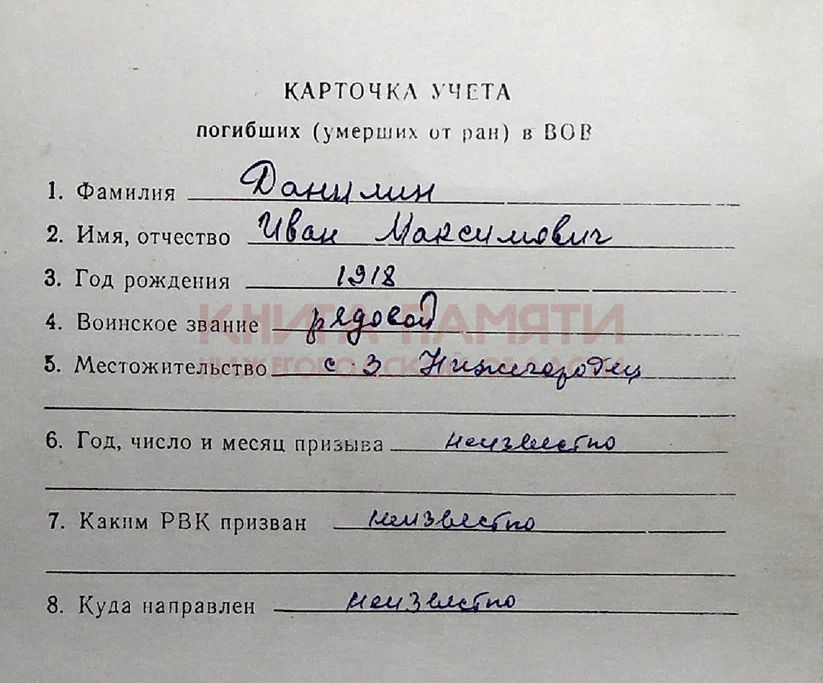 КАРТОЧКА УЧЕТА
погибших (умерших от ран) в ВОВ
1. Фамилия Данилин
2. Имя, отчество Иван Максимович
3. Год рождения 1918
КНИГА ПАМЯТИ
4. Воинское звание рядовой
НИЖЕГОРОДСКОЙ ОБЛАСТИ
5. Местожительство с-з Нижегородец
6. Год, число и месяц призыва неизвестно
7. Каким РВК призван неизвестно
8. Куда направлен неизвестно